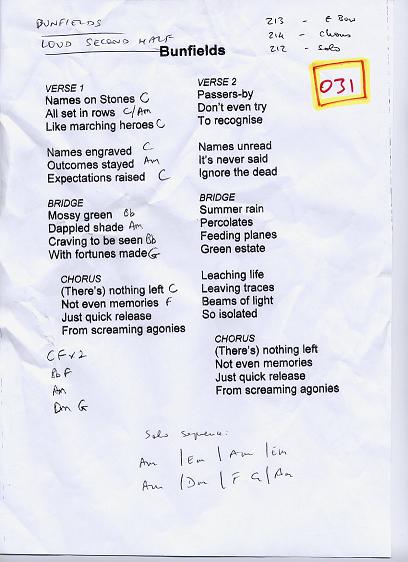 BUNFIELDS
LOUD SECOND HALF
213 - E Bow
214 - Chorus
212 - Solo
Bunfields
031
VERSE 1
Names on Stones C
All set in rows C/Am
Like marching heroes C
Names engraved C
Outcomes stayed Am
Expectations raised C
BRIDGE
Mossy green Bb
Dappled shade Am
Craving to be seen Bb
With fortunes made G
CHORUS
(There's) nothing left C
Not even memories F
Just quick release
From screaming agonies
C F x 2
Bb F
Am
Dm G
VERSE 2
Passers-by
Don't even try
To recognise
Names unread
It's never said
Ignore the dead
BRIDGE
Summer rain
Percolates
Feeding planes
Green estate
Leaching life
Leaving traces
Beams of light
So isolated
CHORUS
(There's) nothing left
Not even memories
Just quick release
From screaming agonies
Solo sequence:
Am | Em | Am | Em
Am | Dm | F G | Am